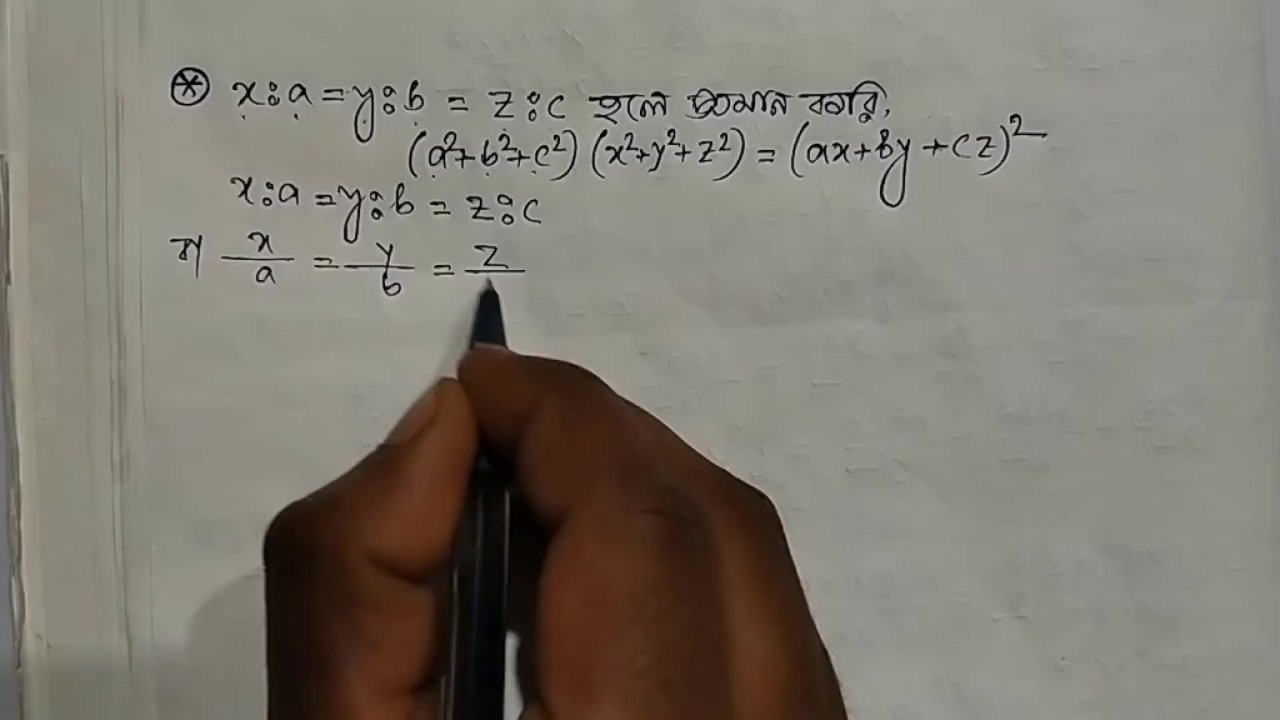 ⊛ x:a = y:b = z:c হলে প্রমান করি,
(a²+b²+c²) (x²+y²+z²) = (ax+by+cz)²
x:a = y:b = z:c
বা x/a = y/b = z/